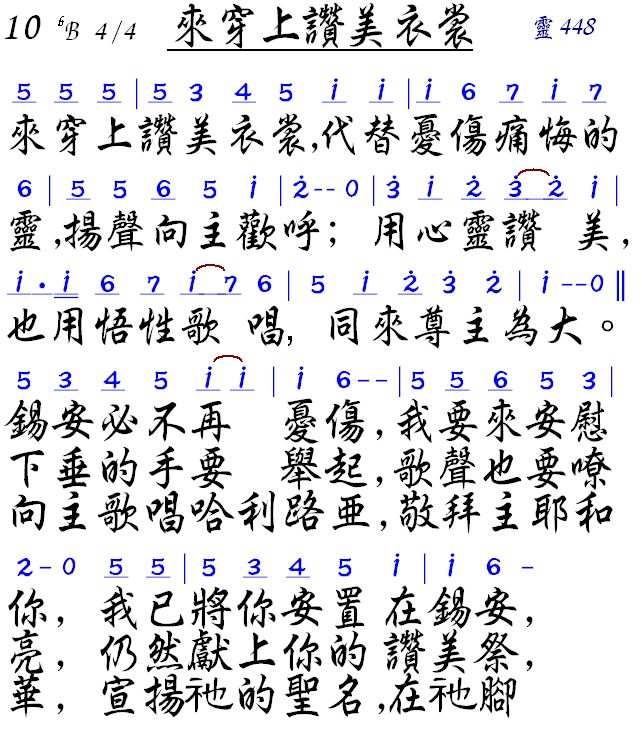 10 ♭B 4/4 來穿上讚美衣裳 靈 448
5 5 5 | 5 3 4 5 i i | i 6 7 i 7
來穿上讚美衣裳,代替憂傷痛悔的
6 | 5 5 6 5 i | 2̇ -- 0 | 3̇ i 2̇ 3̇ 2̇ i |
靈,揚聲向主歡呼; 用心靈讚 美,
i · i 6 7 i 7 6 | 5 i 2̇ 3̇ 2̇ | i --0 ‖
也用悟性歌 唱, 同來尊主為大。
5 3 4 5 i i | i 6-- | 5 5 6 5 3 |
錫安必不再 憂傷,我要來安慰
下垂的手要 舉起,歌聲也要嘹
向主歌唱哈利路亞,敬拜主耶和
2 - 0 5 5 | 5 3 4 5 i | i 6 -
你, 我已將你安置在錫安,
亮, 仍然獻上你的讚美祭,
華, 宣揚祂的聖名,在祂腳